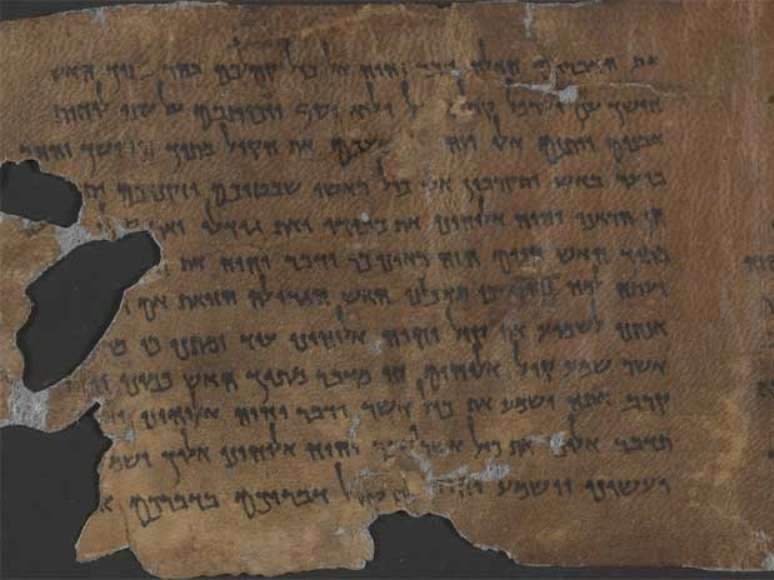 את הדברים האלה דבר יהוה אל כול קהלכם בהר מתוך האש
חושך ענן וערפל קול ולוא יסף ויכתובם על שני לוחות
אבנים ויתנם אלי ויהי את הקול מתוך החושך וההר
בוער באש ותקרבון אלי כול ראשי שבטיכם וזקניכם
הן הראנו יהוה אלוהינו את כבודו ואת גודלו
מתוך האש היום הזה ראינו כי ידבר יהוה את
ועתה למה נמות כי תאכלנו האש הגדולה הזואת אם
אנחנו לשמוע את קול יהוה אלוהינו עוד ומתנו כי מי
אשר שמע קול אלוהים חי מדבר מתוך האש כמונו
קרב אתה ושמע את כול אשר ידבר יהוה אלוהינו
תדבר אלינו את כול אשר ידבר יהוה אלוהינו אליך
ועשינו וישמע יהוה קול דבריכם בדברכם